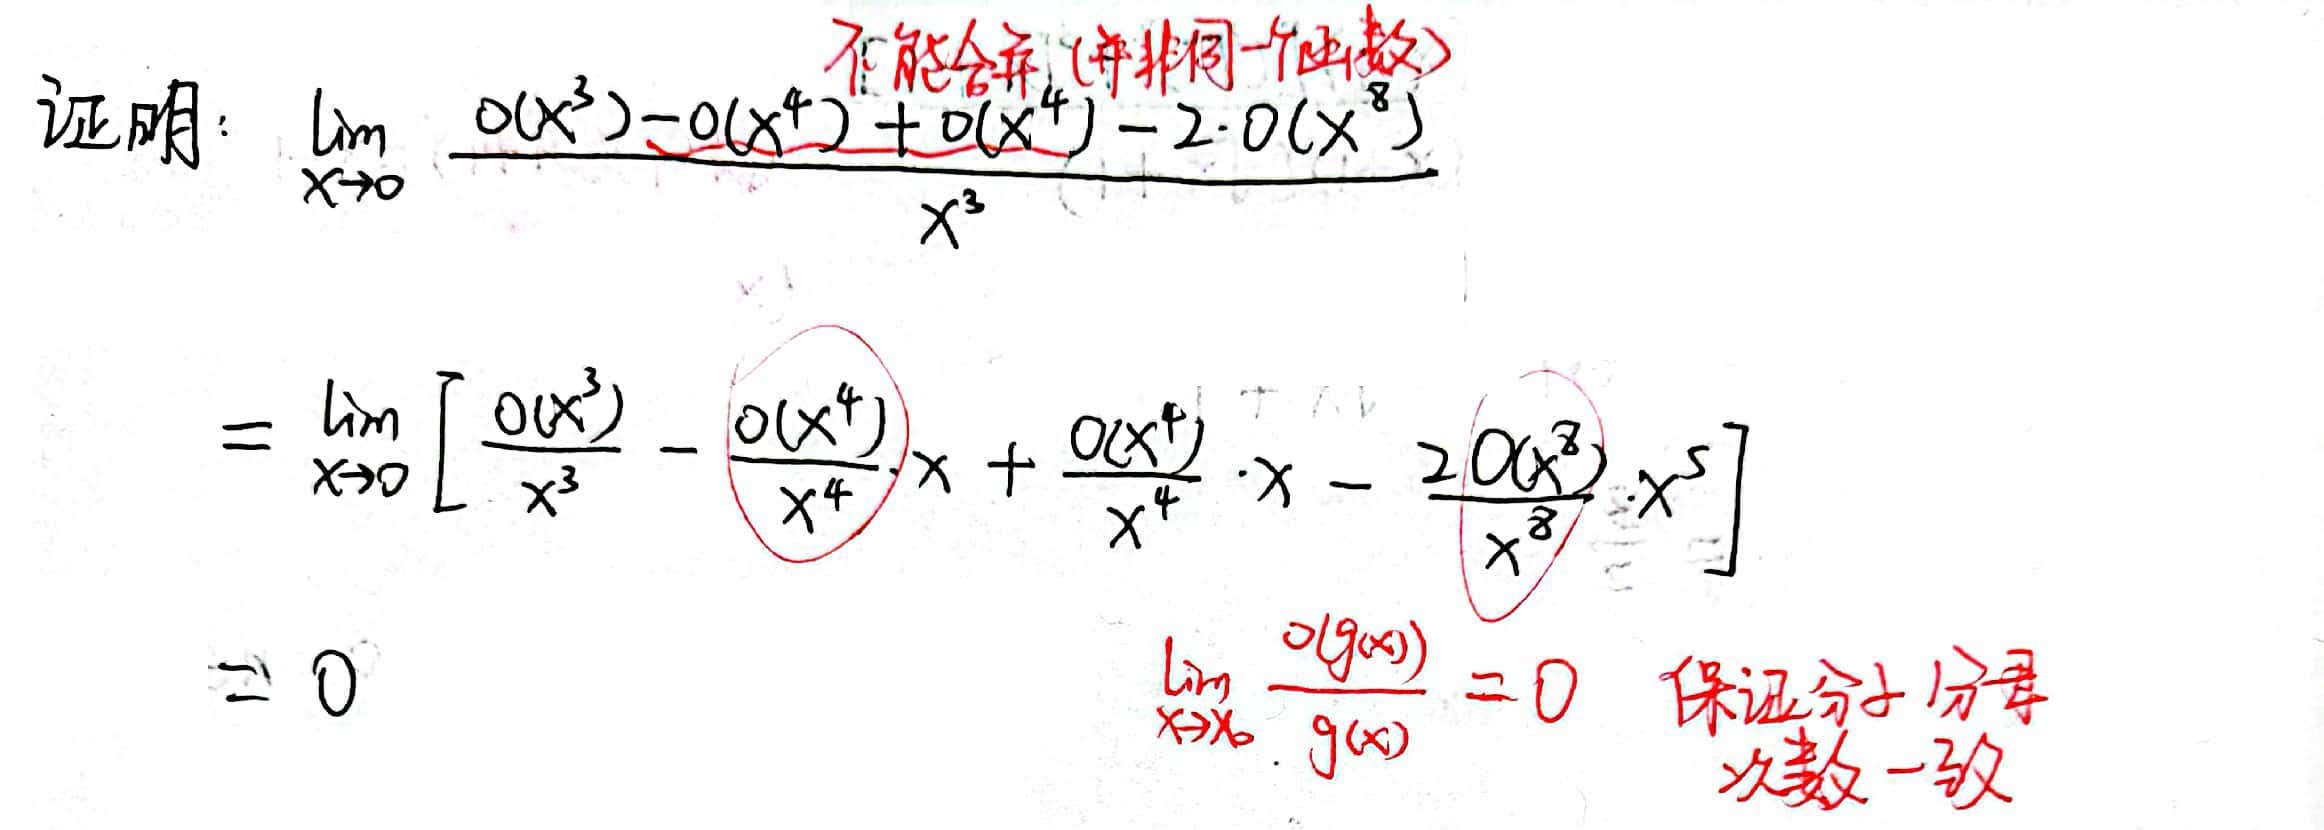 不能合并(并非同一个函数)
证明: lim x→0 (o(x³)-o(x⁴)+o(x⁴)-2·o(x⁸))/x³
= lim x→0 [ o(x³)/x³ - o(x⁴)/x⁴ ·x + o(x⁴)/x⁴ ·x - 2o(x⁸)/x⁸ ·x⁵ ]
= 0
lim x→x₀ o(g(x))/g(x) = 0 保证分子分母
次数一致